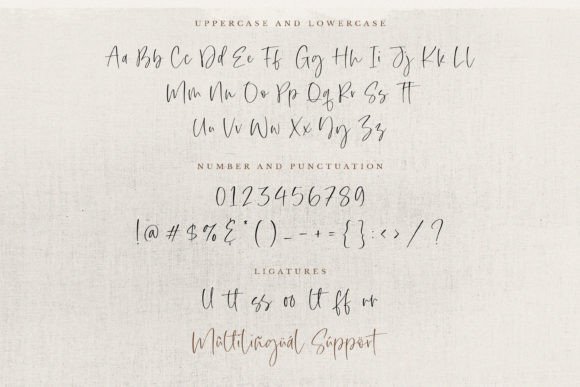 UPPERCASE AND LOWERCASE
Aa Bb Cc Dd Ee Ff Gg Hh Ii Jj Kk Ll
Mm Nn Oo Pp Qq Rr Ss Tt
Uu Vv Ww Xx Yy Zz
NUMBER AND PUNCTUATION
0123456789
!@#$%&*()_-+={}:<>/?
LIGATURES
ll tt ss oo lt ff rr
Múltilíñgúál Súppórt